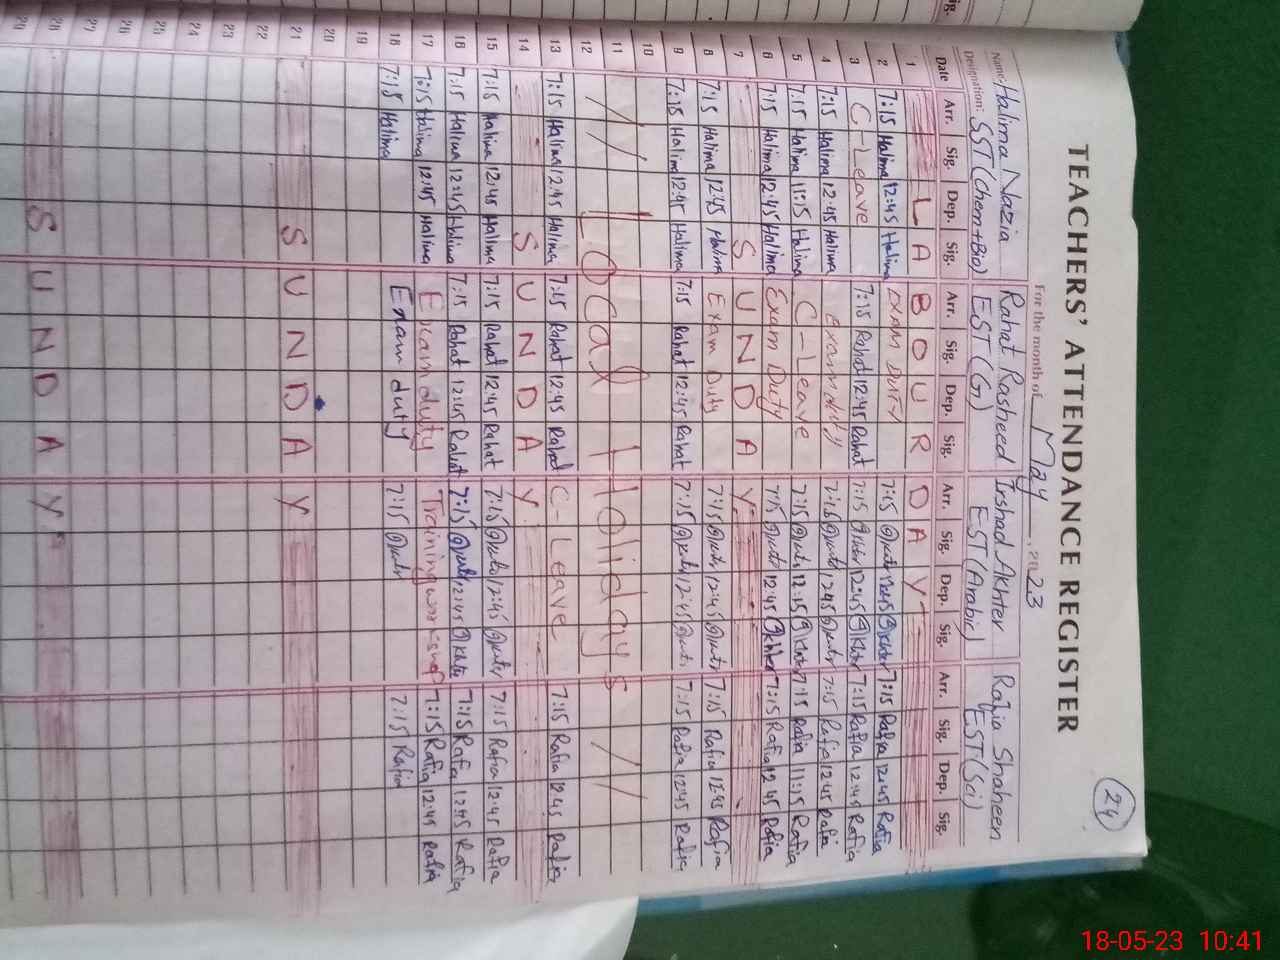 24
TEACHERS' ATTENDANCE REGISTER
For the month of May, 2023
Name: Halima Nazia Rahat Rasheed Irshad Akhter Rafia Shaheen
Designation: SST (Chem+Bio) EST (G) EST (Arabic) EST (Sci)
Date Arr. Sig. Dep. Sig. Arr. Sig. Dep. Sig. Arr. Sig. Dep. Sig. Arr. Sig. Dep. Sig.
1 LABOUR DAY
2 7:15 Halima 12:45 Halima EXAM DUTY 7:15 Akhter 12:45 Akhter 7:15 Rafia 12:45 Rafia
3 C-Leave 7:15 Rahat 12:45 Rahat 7:15 Akhter 12:45 Akhter 7:15 Rafia 12:45 Rafia
4 7:15 Halima 12:45 Halima Exam duty 7:15 Akhter 12:45 Akhter 7:15 Rafia 12:45 Rafia
5 7:15 Halima 11:15 Halima C-Leave 7:15 Akhter 12:15 Akhter 7:15 Rafia 11:15 Rafia
6 7:15 Halima 12:45 Halima Exam Duty 7:15 Akhter 12:45 Akhter 7:15 Rafia 12:45 Rafia
7 SUNDAY
8 7:15 Halima 12:45 Halima Exam Duty 7:15 Akhter 12:45 Akhter 7:15 Rafia 12:45 Rafia
9 7:15 Halima 12:45 Halima 7:15 Rahat 12:45 Rahat 7:15 Akhter 12:45 Akhter 7:15 Rafia 12:45 Rafia
10
11 // Local Holidays //
12
13 7:15 Halima 12:45 Halima 7:15 Rahat 12:45 Rahat C-Leave 7:15 Rafia 12:45 Rafia
14 SUNDAY
15 7:15 Halima 12:45 Halima 7:15 Rahat 12:45 Rahat 7:15 Akhter 12:45 Akhter 7:15 Rafia 12:45 Rafia
16 7:15 Halima 12:45 Halima 7:15 Rahat 12:45 Rahat 7:15 Akhter 12:45 Akhter 7:15 Rafia 12:45 Rafia
17 7:15 Halima 12:45 Halima Exam duty Training workshop 7:15 Rafia 12:45 Rafia
18 7:15 Halima Exam duty 7:15 Akhter 7:15 Rafia
19
20
21 SUNDAY
22
23
24
25
26
27
28 SUNDAY
29
18-05-23 10:41